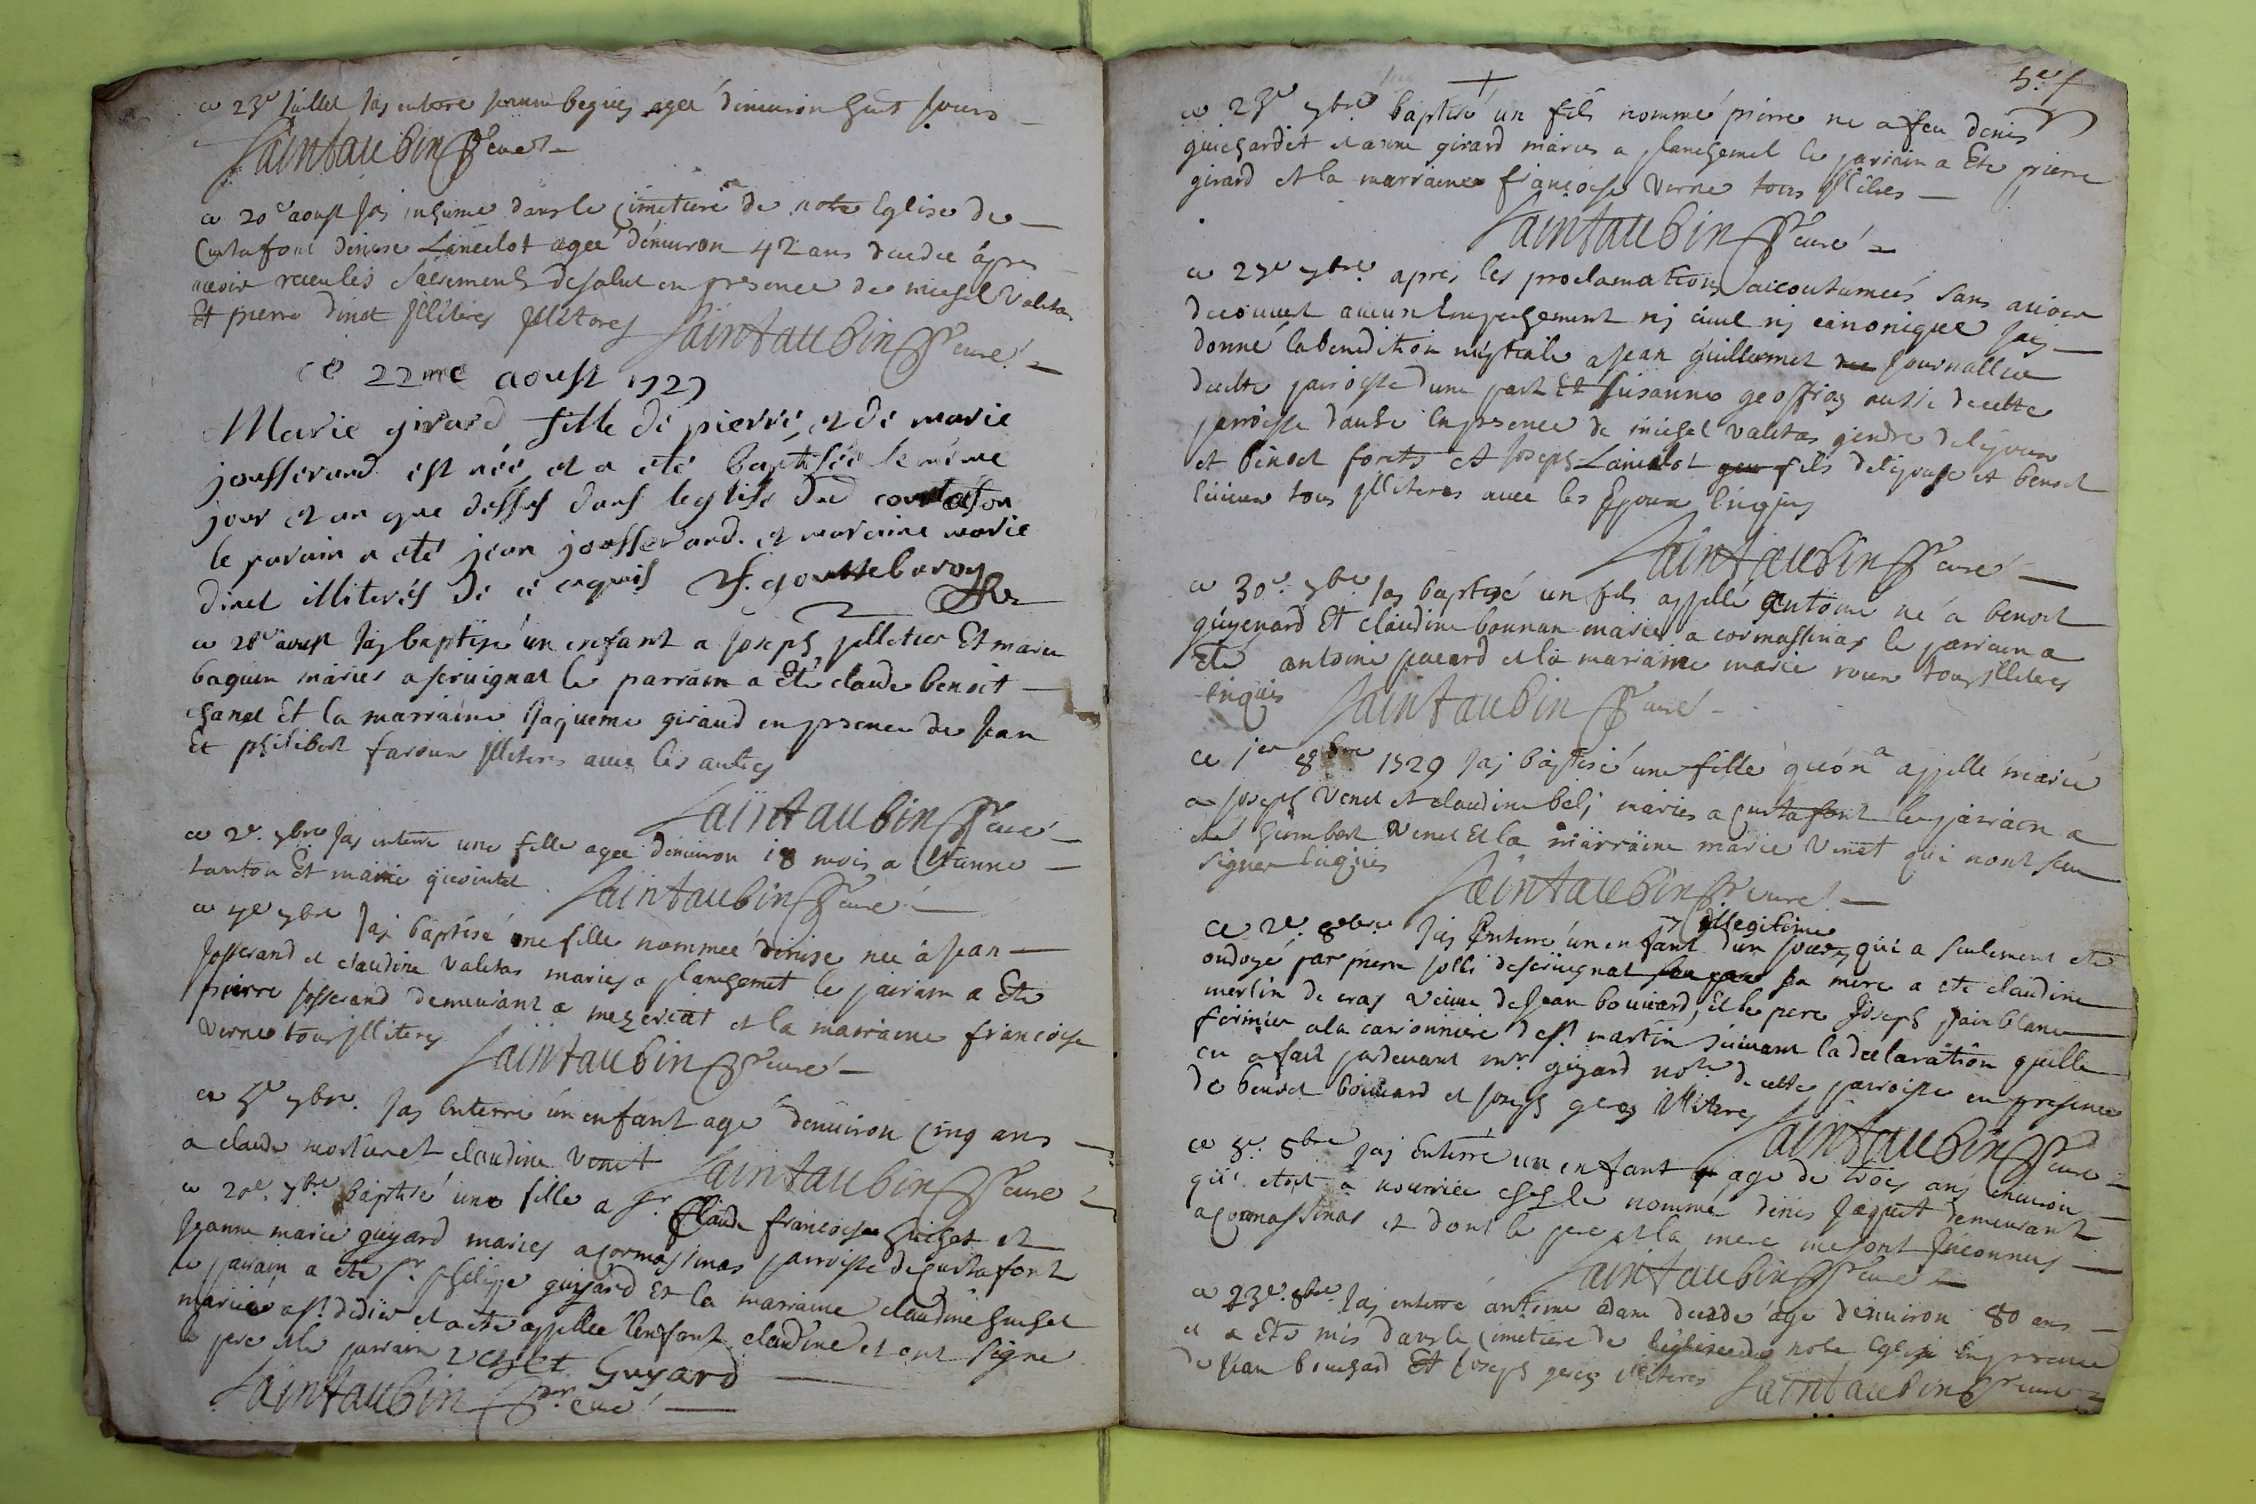 ce 23e Juillet Jay enterre beguey agee denuiron huit Jours
Saintaubin Pr curé
ce 20e aoust Jay inhume dans le Cimetiere de notre Eglise de
Curtafont denise Lancelot agee denuiron 42 ans decedee apres
auoir receu les sacrements de salut en presence de michel Valitas
Et pierre dinet Jlliteres Saintaubin Pr curé
ce 22me aoust 1729
Marie girard fille de pierre, et de marie
jousserand est née, et a eté baptisée le même
jour et an que dessus dans leglise de
le parain a eté jean jousserand et maraine marie
dinet illiterés de ce enquis
ce 28e aoust Jay baptisé un enfant a Joseph pelletier Et marie
baguin mariés a seruignat le parrain a Eté claude benoit
chanel Et la marraine Jaqueme giraud en presence de Jean
Et philibert faroux Jlliteres auec les autres
Saintaubin Pr curé
ce 2e 7bre Jay enterre une fille agee denuiron 18 mois a Etienne
tauton Et marie
Saintaubin Pr curé
ce 4e 7bre Jay baptisé une fille nommeé denise nee à Jean
Josserand et claudine Valitas mariés a planchemet le pairain a Eté
pierre Josserand demeurant a mezeriat et la marraine francoise
Verne tous Jlliteres Saintaubin Pr curé
ce 5e 7bre Jay Enterre un enfant agé denuiron Cinq ans
a claude mortier et claudine Venet Saintaubin Pr curé
ce 20e 7bre baptisé une fille a Sr Claude francoise huchet et
Jeanne marie guyard mariés a Cormassinas parroisse de Curtafont
le pairain a eté Sr philippe guyard Et la marraine claudine huchet
mariée a St didier et a eté appellée lenfant claudine et ont signe
le pere et le parrain Guyard
Saintaubin Pr curé
5e f
ce 25e 7bre baptisé un fils nommé pierre ne a feu denis
guichardet et anne girard mariés a planchemel le pariain a Eté pierre
girard et la marraine francoise Verne tous Jlliteres
Saintaubin Pr curé
ce 27e 7bre apres les proclamations accoutumeés sans auoir
decouuert aucun Empechement ny ciuil ny canonique Jay
donné la benediction nuptiale a Jean guillermet Journallier
de cette parroisse dune part Et Susanne geoffray aussi de cette
parroisse dautre En presence de michel Valitas gendre de lepoux
et benoit forets et Joseph Lancelot fils de lepouse et benoit
tous Jlliteres auec les Epoux Enquis
Saintaubin Pr curé
ce 30e 7bre Jay baptisé un fils appellé antoine né a benoit
guyenard Et claudine bounan mariés a cormassinas le parrain a
Eté antoine pacard et la marraine marie roux tous Jlliteres
Enquis Saintaubin Pr curé
ce 1er 8bre 1729 Jay baptisé une fille quón a appellé marie
a Joseph Venet et claudine beli mariés a Curtafont le parrain a
eté humbert Venet Et la marraine marie Venet qui nont sceu
signer Enquis Saintaubin Pr curé
illegitime
ce 2e 8bre Jay Enterré un enfant dun Jour, qui a seulement eté
ondoyé par pierre Jolli de seruignat sa mere a ete claudine
merlin de cras Veuue de Jean bouuard, et le pere Joseph painblanc
fermier a la caronniere de St martin suiuant la declaration quelle
en a fait pardeuant mr guyard notre de cette parroisse en presence
de benoit bouuard et Joseph geay Jlliteres
Saintaubin Pr curé
ce 8e 8bre Jay Enterré un enfant age de trois ans enuiron
qui etoit a nourrice chez le nommé denis Jaquet demeurant
a Cormassinas et dont le pere et la mere me sont Jnconnus
Saintaubin Pr curé
ce 23e 8bre Jay enterré antoine Dane decedé age denuiron 80 ans
et a Eté mis dans le Cimetiere de notre Eglise En presence
de Jean bouchard Et Joseph geay illiteres Saintaubin Pr curé